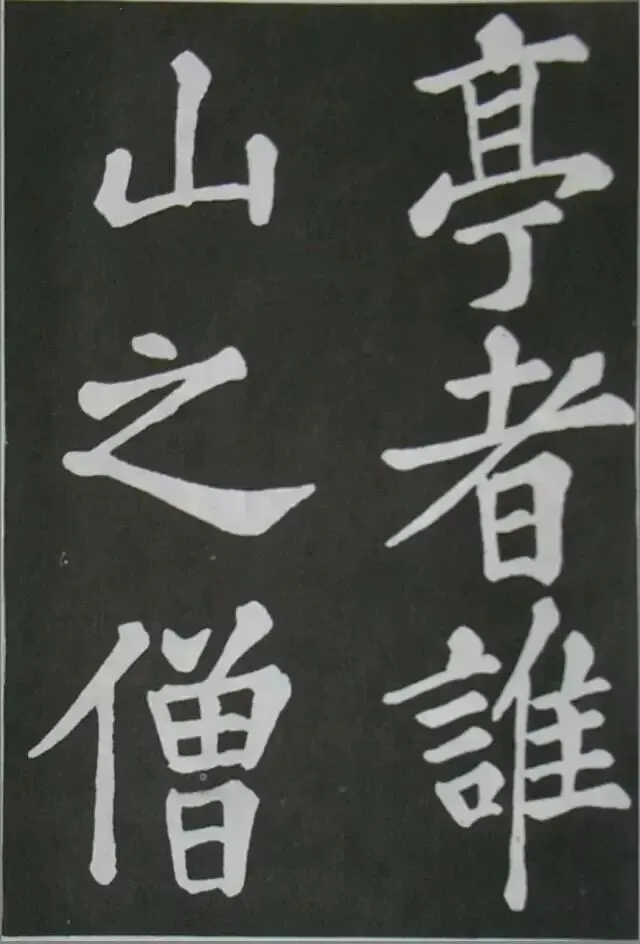 亭者誰
山之僧